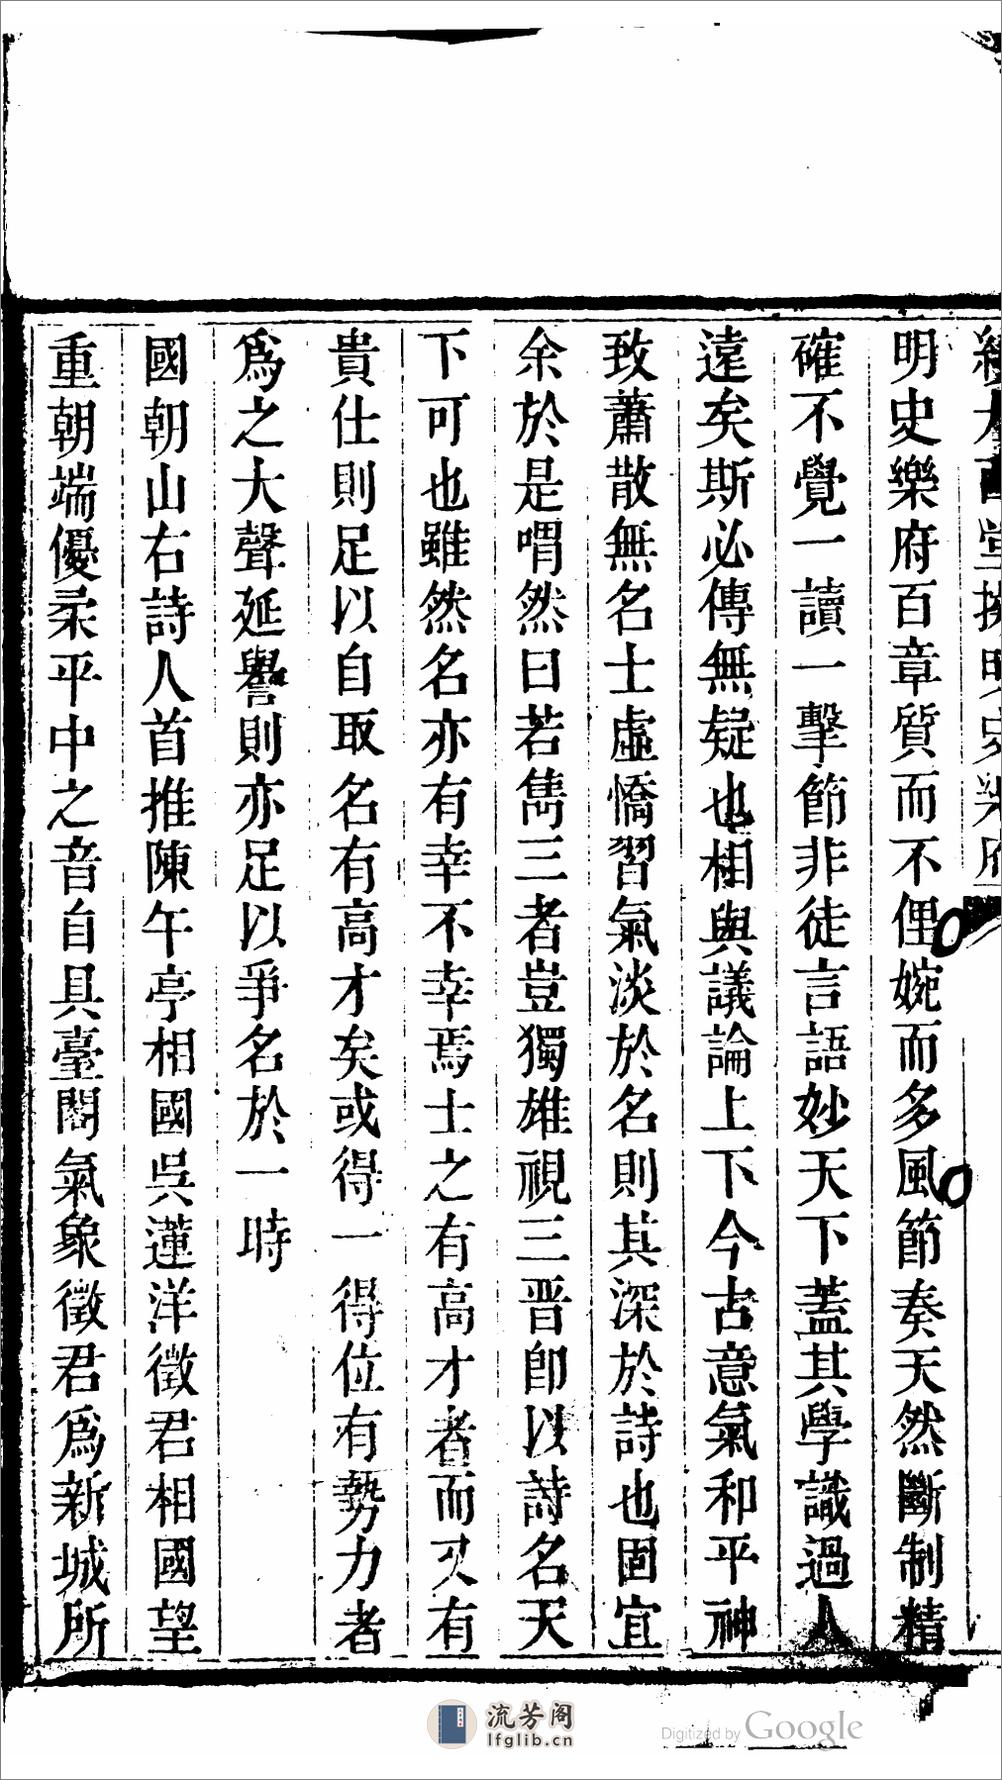 明史樂府百章質而不俚婉而多風節奏天然斷制精
確不覺一讀一擊節非徒言語妙天下蓋其學識過人
遠矣斯必傳無疑也相與議論上下今古意氣和平神
致蕭散無名士虛憍習氣淡於名則其深於詩也固宜
余於是喟然曰若雋三者豈獨雄視三晋卽以詩名天
下可也雖然名亦有幸不幸焉士之有高才者而又有
貴仕則足以自取名有高才矣或得一得位有勢力者
爲之大聲延譽則亦足以爭名於一時
國朝山右詩人首推陳午亭相國吳蓮洋徵君相國望
重朝端優柔平中之音自具臺閣氣象徵君爲新城所
流芳阁
lfglib.cn
Digitized by Google